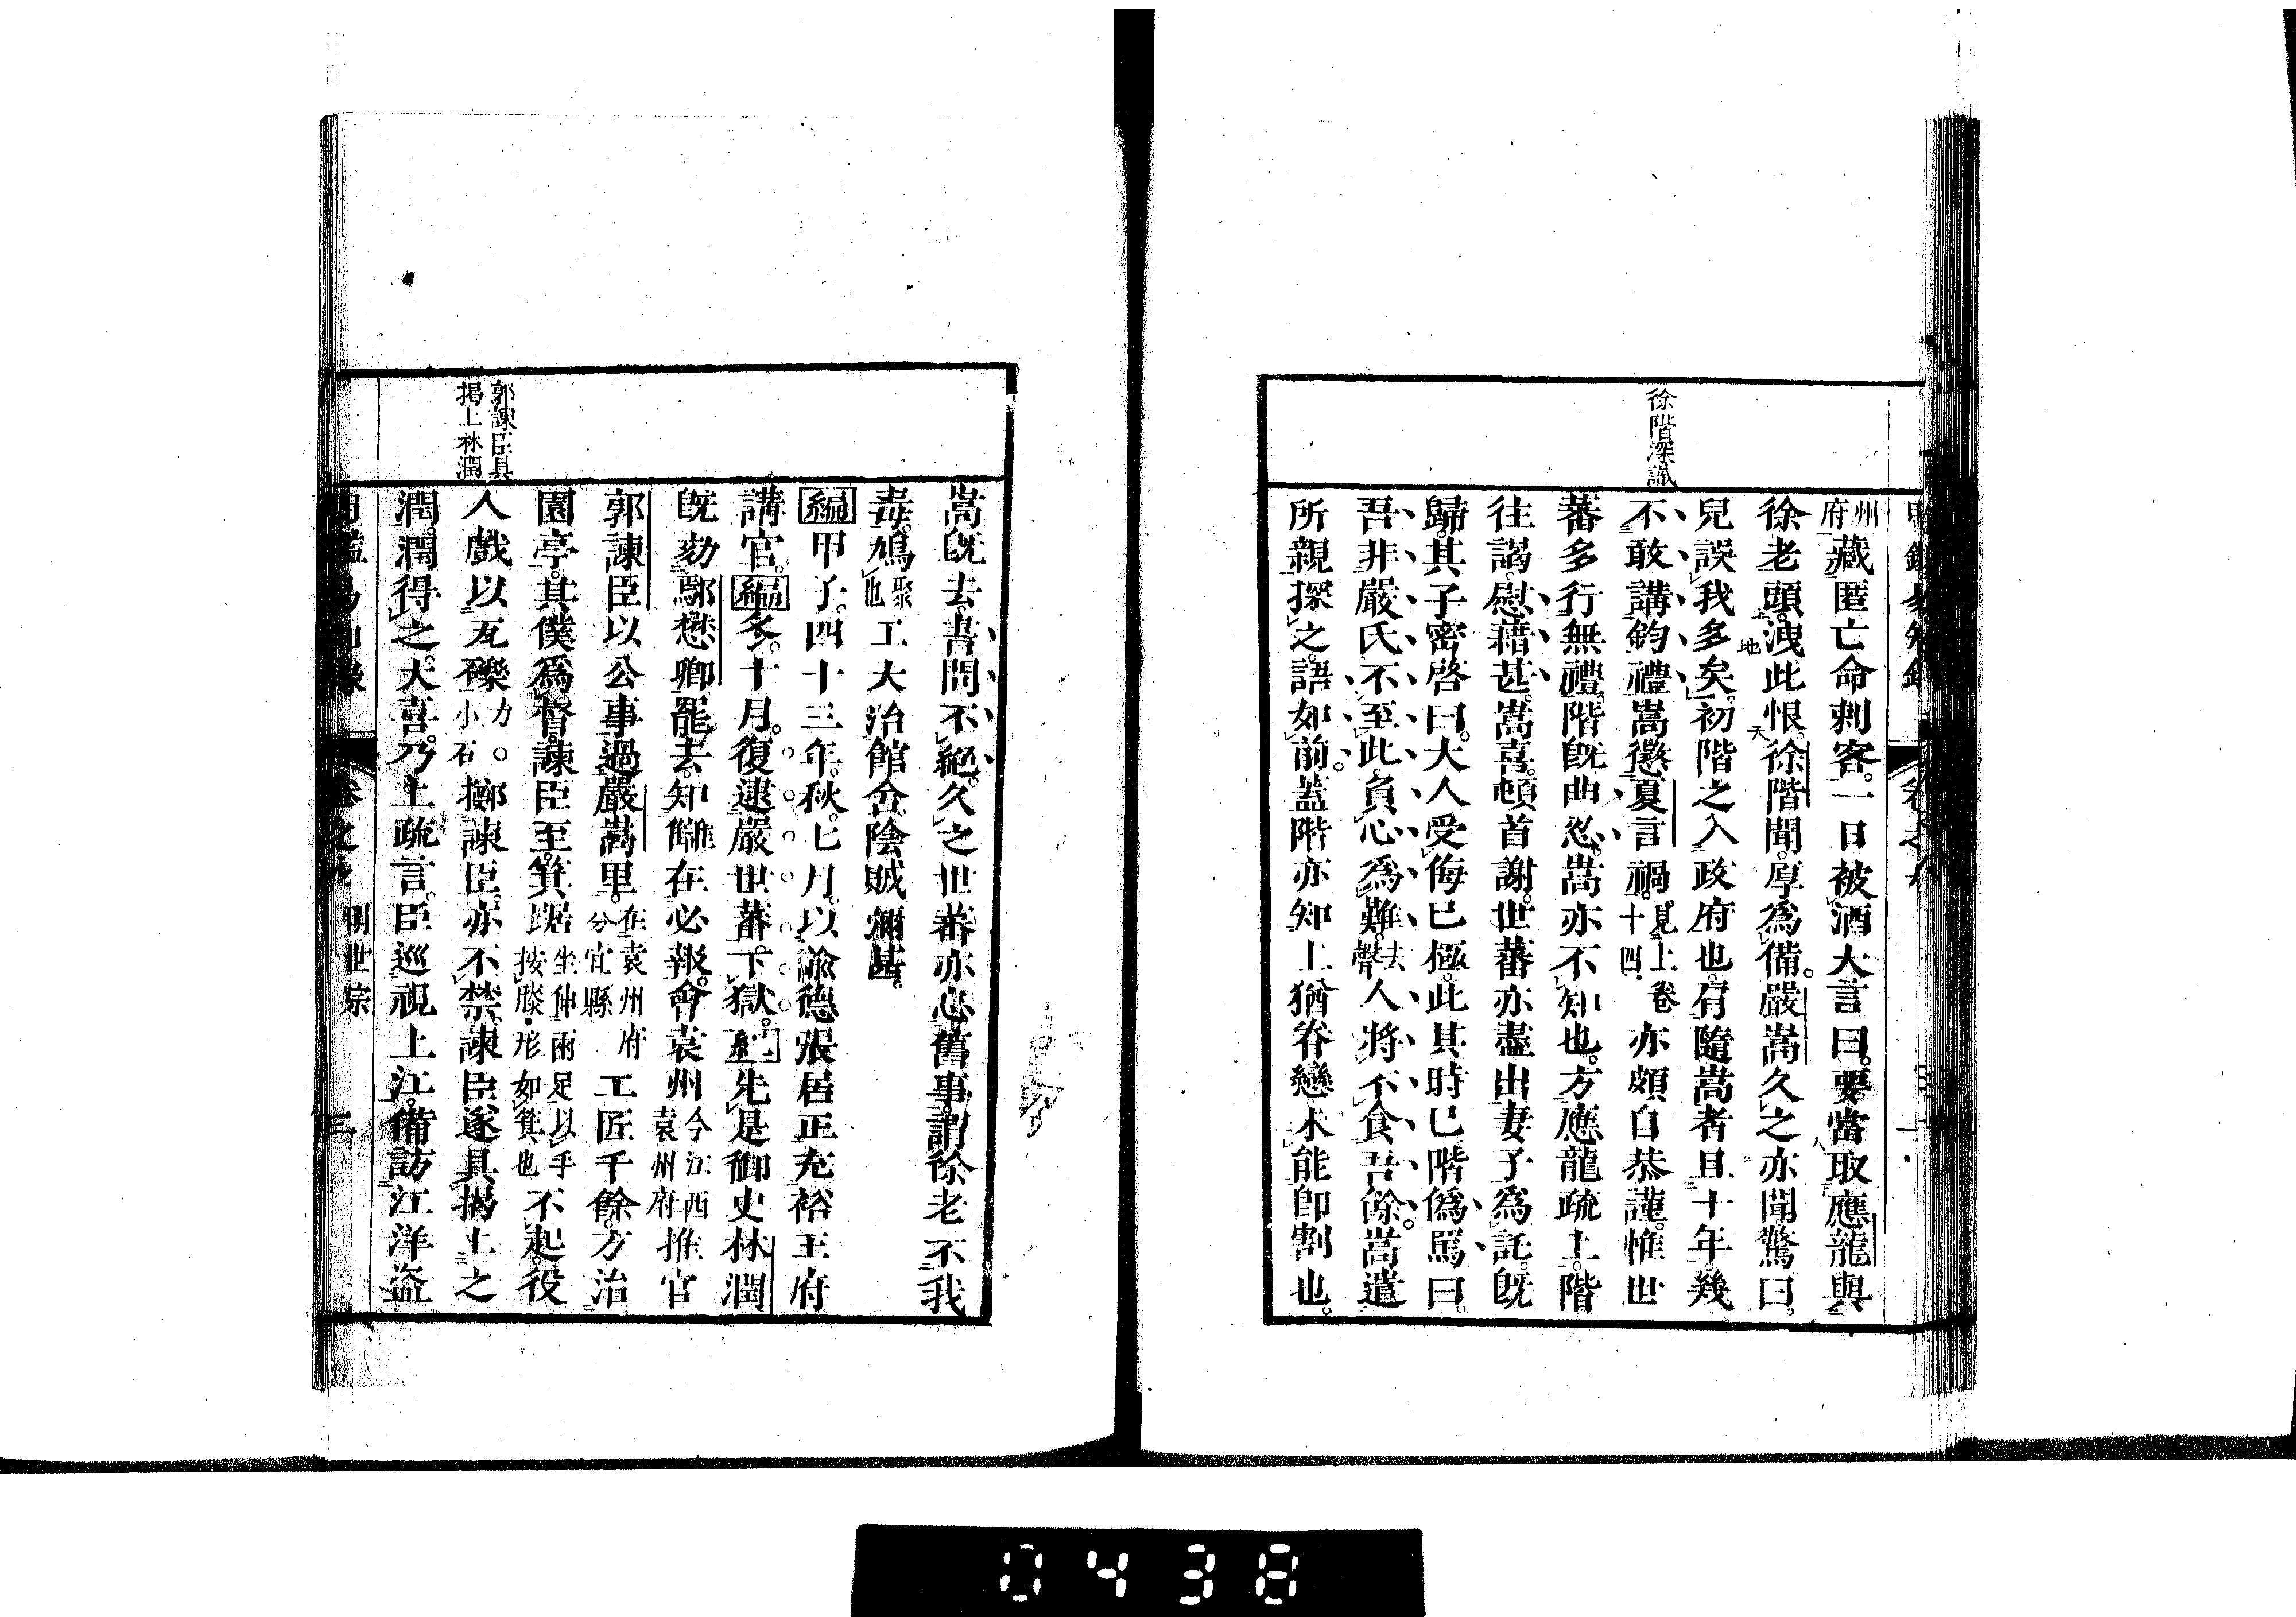 徐階深識
州府藏匿亡命刺客。一日被酒大言曰。要當取應龍與
徐老頭。洩此恨。徐階聞。厚為備。嚴嵩久之亦聞驚曰。
兒誤我多矣。初階之入政府也。肩隨嵩者且十年。幾
不敢講鈞禮嵩懲夏言禍。見上卷十四。亦頗自恭謹。惟世
蕃多行無禮。階旣曲忍。嵩亦不知也。方應龍疏上。階
往謁。慰藉甚。嵩喜。頓首謝。世蕃亦盡出妻子為託。旣
歸。其子密啓曰。大人受侮已極。此其時已。階僞罵曰。
吾非嚴氏不至此。負心為難。去聲人將不食吾餘。嵩遣
所親探之。語如前。蓋階亦知上猶眷戀未能卽割也。
嵩旣去。書問不絕。久之世蕃亦忘舊事。謂徐老不我
毒。鳩聚也工大治館舍。陰賊彌甚。
編甲子。四十三年。秋。七月。以諭德張居正充裕王府
講官。編冬。十月。復逮嚴世蕃。下獄。紀先是御史林潤
旣劾鄢懋卿罷去。知讎在必報。會袁州今江西袁州府推官
郭諫臣以公事過嚴嵩里。在袁州府分宜縣工匠千餘。方治
園亭。其僕為督。諫臣至。箕踞坐伸兩足以手按膝形如箕也不起。役
人戲以瓦礫力。小石。擲諫臣。亦不禁。諫臣遂具揭上之
潤。潤得之。大喜。乃上疏言。臣巡視上江。備訪江洋盜
郭諫臣具
揭上林潤
卷之
明世宗
三
0438